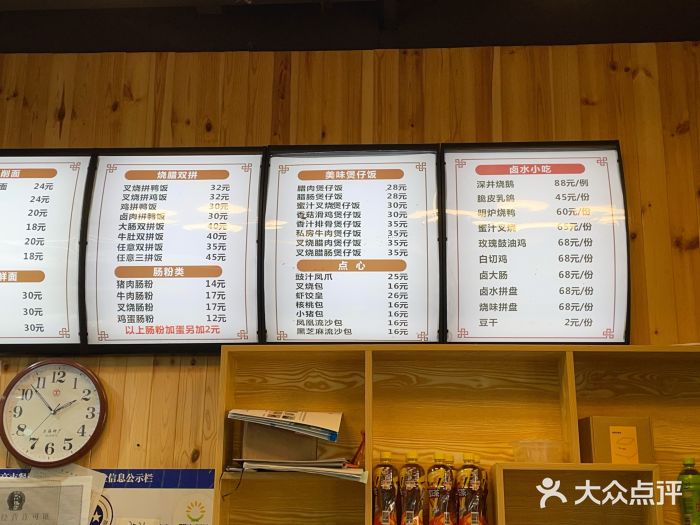 削面
24元
24元
20元
18元
20元
18元
鲜面
30元
30元
30元
烧腊双拼
叉烧拼鸭饭 32元
叉烧拼鸡饭 32元
鸡拼鸭饭 30元
卤肉拼鸭饭 30元
大肠双拼饭 40元
牛肚双拼饭 40元
任意双拼饭 35元
任意三拼饭 45元
肠粉类
猪肉肠粉 14元
牛肉肠粉 17元
叉烧肠粉 17元
鸡蛋肠粉 12元
以上肠粉加蛋另加2元
美味煲仔饭
腊肉煲仔饭 28元
腊肠煲仔饭 28元
蜜汁叉烧煲仔饭 30元
香菇滑鸡煲仔饭 30元
香汁排骨煲仔饭 30元
私房牛肉煲仔饭 30元
叉烧腊肉煲仔饭 35元
叉烧腊肠煲仔饭 35元
点心
豉汁凤爪 25元
叉烧包 16元
虾饺皇 26元
核桃包 16元
小猪包 16元
凤凰流沙包 16元
黑芝麻流沙包 16元
卤水小吃
深井烧鹅 88元/例
脆皮乳鸽 45元/份
明炉烧鸭 60元/份
蜜汁叉烧 65元/份
玫瑰鼓油鸡 68元/份
白切鸡 68元/份
卤大肠 68元/份
卤水拼盘 68元/份
烧味拼盘 68元/份
豆干 2元/份
12
1
2
3
4
5
6
7
8
9
10
11
信息公示栏
大众点评